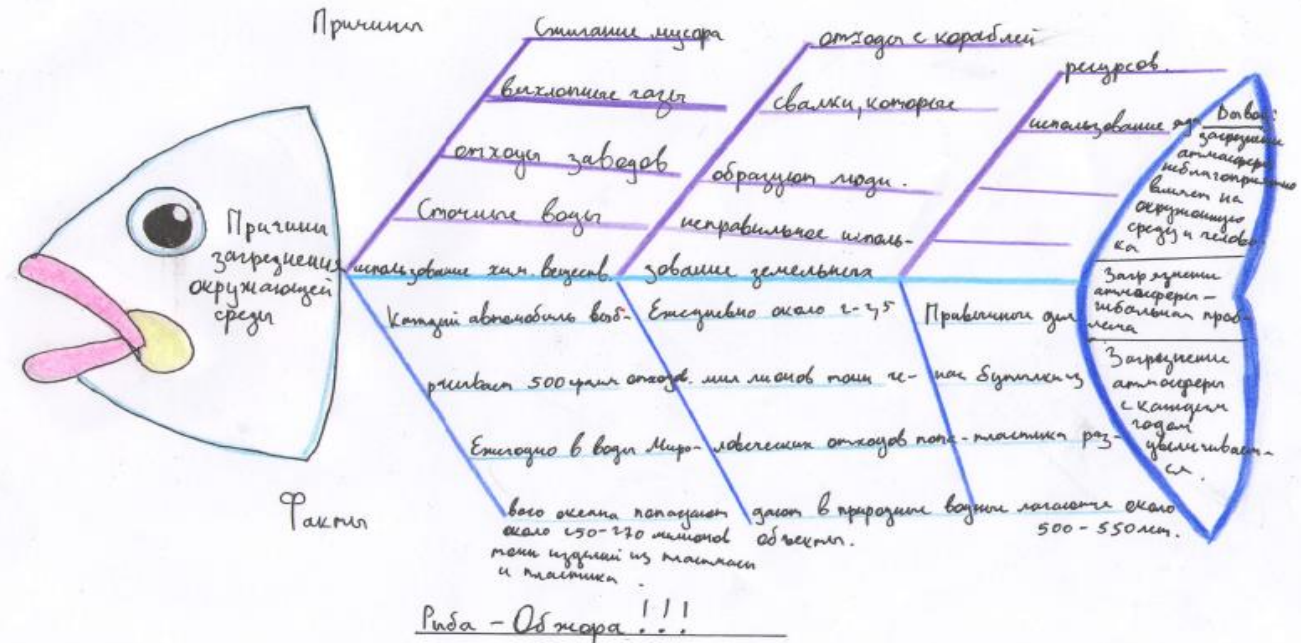 Причины
Сжигание мусора
выхлопные газы
отходы заводов
Сточные воды
использование хим. веществ.
отходы с кораблей
свалки, которые
образуют люди.
неправильное исполь-
зование земельных
ресурсов.
использование
Причины
загрязнения
окружающей
среды
Каждый автомобиль выб-
расывает 500 грамм отходов.
Ежегодно в воды Миро-
вого океана попадают
около 250-270 милионов
тонн изделий из пластмасс
и пластика.
Ежедневно около 2-
мил лионов тонн че-
ловеческих отходов попа-
дают в природные водные
объекты.
Привычные для
нас бутылки из
пластика раз-
лагаются около
500-550 лет.
Вывод:
загрязнение
атмосферы
неблагоприятно
влияет на
окружающую
среду и челове-
ка
Загрязнение
атмосферы -
глобальная проб-
лема
Загрязнение
атмосферы
с каждым
годом
увеличивает-
ся.
Факты
Рыба - Обжора !!!